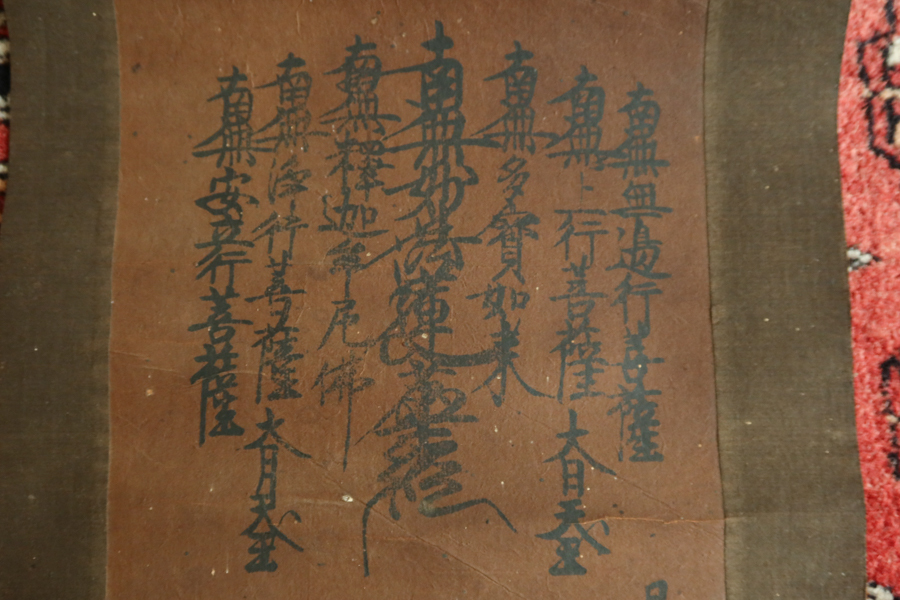 南無無邊行菩薩
南無上行菩薩 大日天王
南無多寶如来
南無妙法蓮華經
南無釋迦牟尼佛
南無浄行菩薩 大月天王
南無安立行菩薩